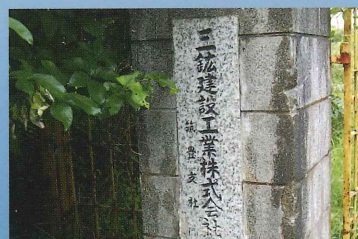 三鉱建設工業株式会社
筑豊支社